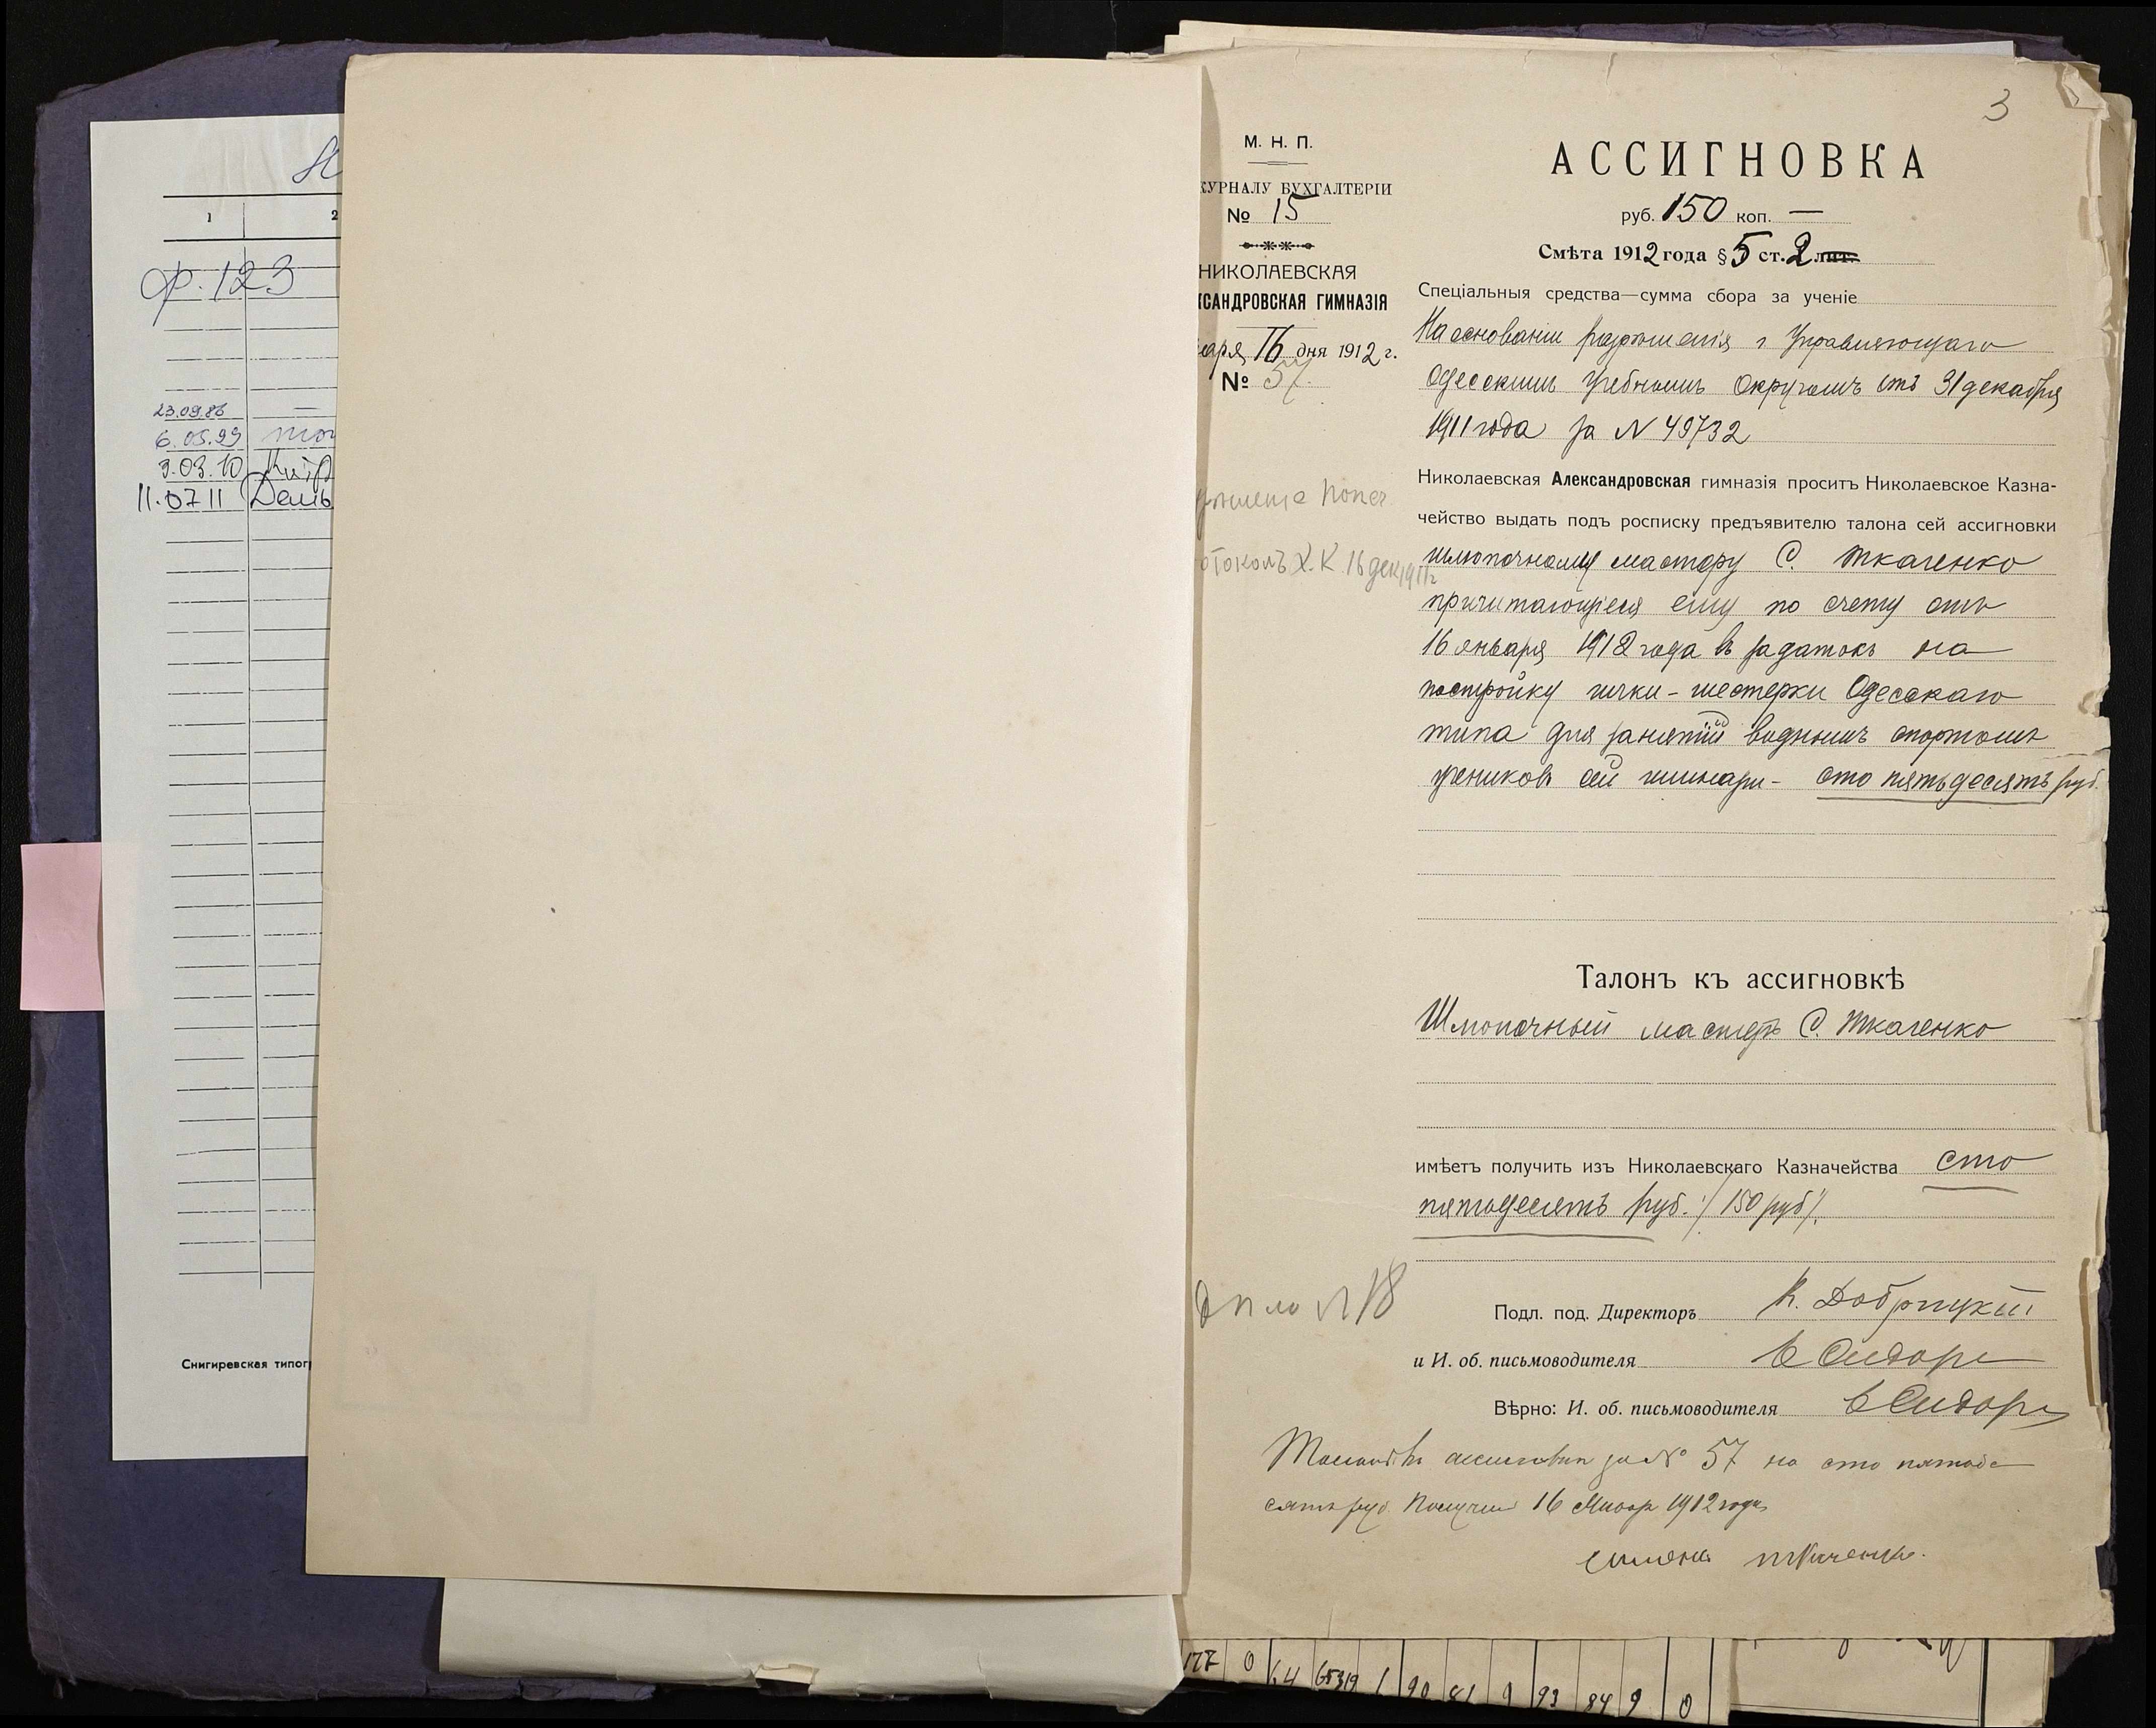 1
2
ф. 123
23.09.86 —
6.05.99
9.03.10
11.07 11
Снигиревская типог
3
М. Н. П.
ЖУРНАЛУ БУХГАЛТЕРІИ
№ 15
НИКОЛАЕВСКАЯ
КСАНДРОВСКАЯ ГИМНАЗІЯ
аря 16 дня 1912 г.
№ 57.
отоколъ Х. К. 16 дек 1911 г
АССИГНОВКА
руб. 150 коп. —
Смѣта 1912 года § 5 ст. 2 лит.
Спеціальныя средства—сумма сбора за ученіе
На основаніи разрѣшенія г Управляющаго
Одесскимъ Учебнымъ Округомъ отъ 31 декабря
1911 года за N 49732
Николаевская Александровская гимназія проситъ Николаевское Казна-
чейство выдать подъ росписку предъявителю талона сей ассигновки
шлюпочному мастеру С. Ткаченко
причитающіеся ему по счету отъ
16 января 1912 года въ задатокъ на
постройку гички-шестерки Одесскаго
типа для занятій воднымъ спортомъ
учениковъ сей гимназіи - сто пятьдесятъ руб.
Талонъ къ ассигновкѣ
Шлюпочный мастеръ С. Ткаченко
имѣетъ получить изъ Николаевскаго Казначейства сто
пятьдесятъ руб. /150 руб/.
№ 18
Подл. под. Директоръ
и И. об. письмоводителя
Вѣрно: И. об. письмоводителя
Талонъ къ ассигновки за № 57 на сто пятьде
сятъ руб. Получилъ 16 Январ 1912 года
Ткаченко.
177 0 64 65319 1 90 81 9 93 84 9 0